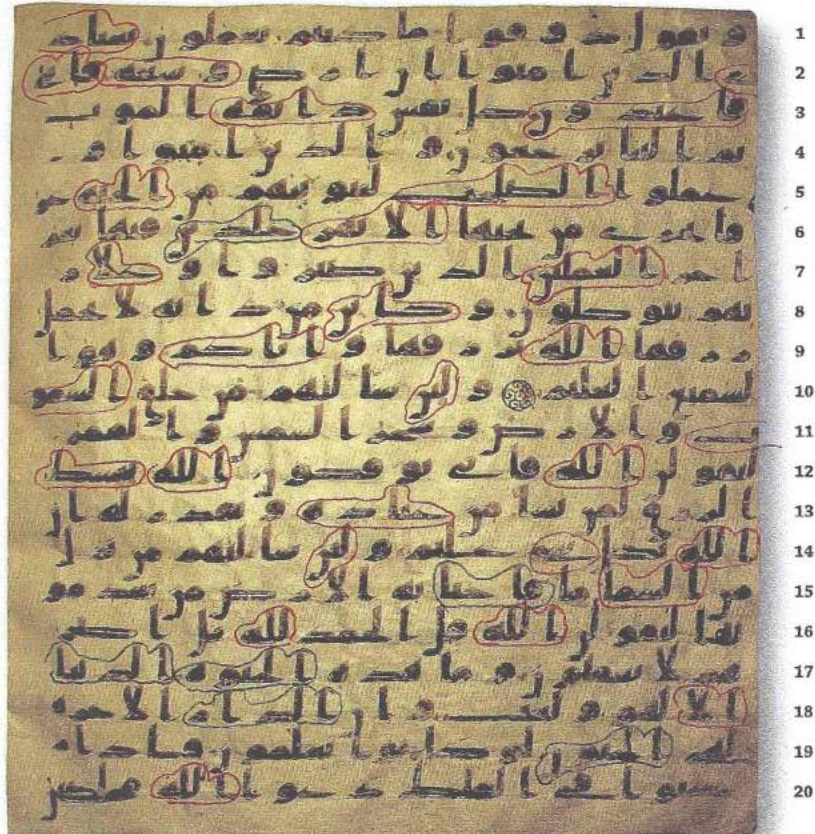 و يقول ذوقوا ما كنتم تعملون يعباد 1
ي الذين امنوا ان ارضي وسعة فاي 2
ي فاعبدون كل نفس ذائقة الموت 3
ثم الينا ترجعون والذين امنوا و 4
عملوا الصلحت لنبوئنهم من الجنة غر 5
فا تجري من تحتها الانهر خلدين فيها نعم 6
اجر العملين الذين صبروا و علا ر 7
بهم يتوكلون و كاين من دابة لا تحمل 8
رزقها الله يرزقها و اياكم و هو ا 9
لسميع العليم و لين سالتهم من خلق السمو 10
ت و الارض و سخر الشمس و القمر 11
ليقولن الله فاني يوفكون الله يبسط 12
الرزق لمن يشا من عباده و يقدر له ان 13
الله بكل شي عليم و لين سالتهم من نزل 14
من السما ما فاحيا به الارض من بعد مو 15
تها ليقولن الله قل الحمد لله بل اكثر 16
هم لا يعقلون و ما هذه الحيوة الدنيا 17
الا لهو و لعب و ان الدار الاخرة 18
لهي الحيون لو كانوا يعلمون فاذا ر 19
كبوا في الفلك دعوا الله مخلصين 20